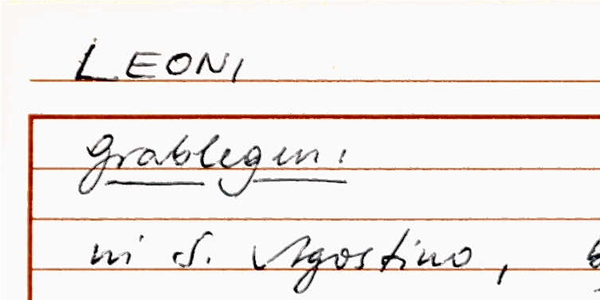 LEONI
Grablegen:
in S. Agostino,